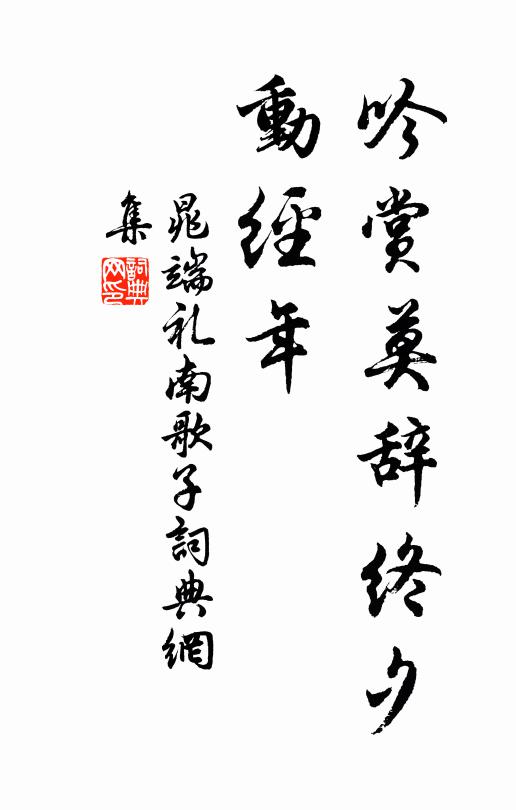 吟賞莫辞終夕
動經年
晁端礼南歌子詞典網
集
詞典
网印